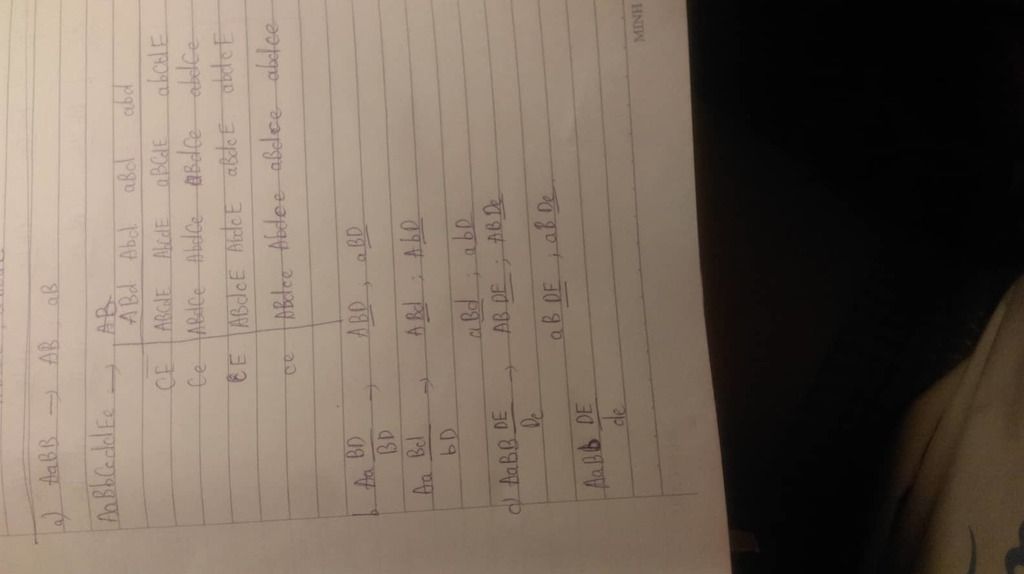 a) AaBB → AB, aB
AaBbCcddEe → AB
ABd Abd aBd abd
CE ABCdE AbCdE aBCdE abCdE
Ce ABdCe AbdCe aBdCe abdCe
cE ABdcE AbdcE aBdcE abdcE
ce ABdce Abdce aBdce abdce
b, Aa BD/BD → ABD, aBD
Aa Bd/bD → ABd; AbD
aBd; abD
c) AaBB DE/De → AB DE; AB De
aB DE, aB De
AaBb DE/de
MINH